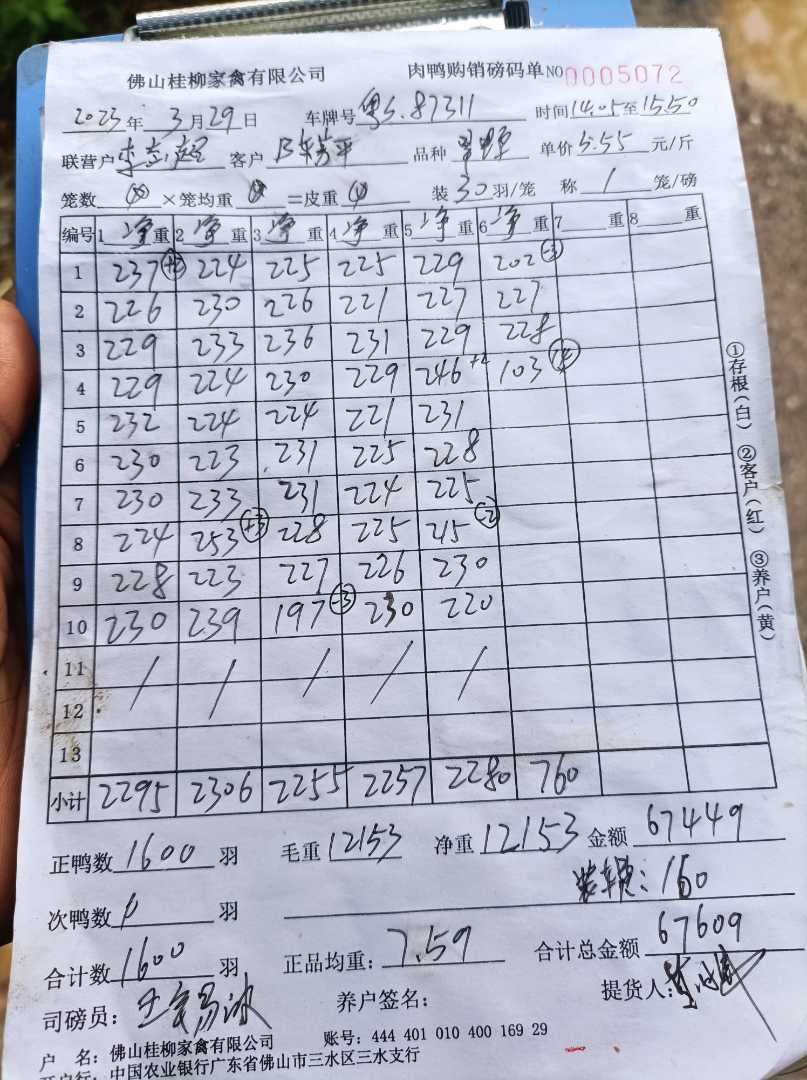 佛山桂柳家禽有限公司 肉鸭购销磅码单 NO 0005072
2023年3月29日 车牌号 粤S.87311 时间14.05至15.50
联营户 客户 品种 单价5.55元/斤
笼数 ×笼均重 =皮重 装30羽/笼 称1笼/磅
编号 1净重 2净重 3净重 4净重 5净重 6净重 7 重 8 重
1 237 224 225 225 229 202 -3
2 226 230 226 221 227 227
3 229 233 236 231 229 228
4 229 224 230 229 246 103
5 232 224 224 221 231
6 230 223 231 225 228
7 230 233 231 224 225
8 224 253 +3 228 225 -2
9 228 223 227 226 230
10 230 239 197 -3 230 220
11 / / / / /
12
13
小计 2295 2306 2255 2257 2280 760
①存根(白) ②客户(红) ③养户(黄)
正鸭数1600羽 毛重12153 净重12153 金额67449
160
次鸭数 羽
合计数1600羽 正品均重:7.59 合计总金额67609
司磅员: 养户签名: 提货人:
户 名:佛山桂柳家禽有限公司 账号:444 401 010 400 169 29
开户行:中国农业银行广东省佛山市三水区三水支行